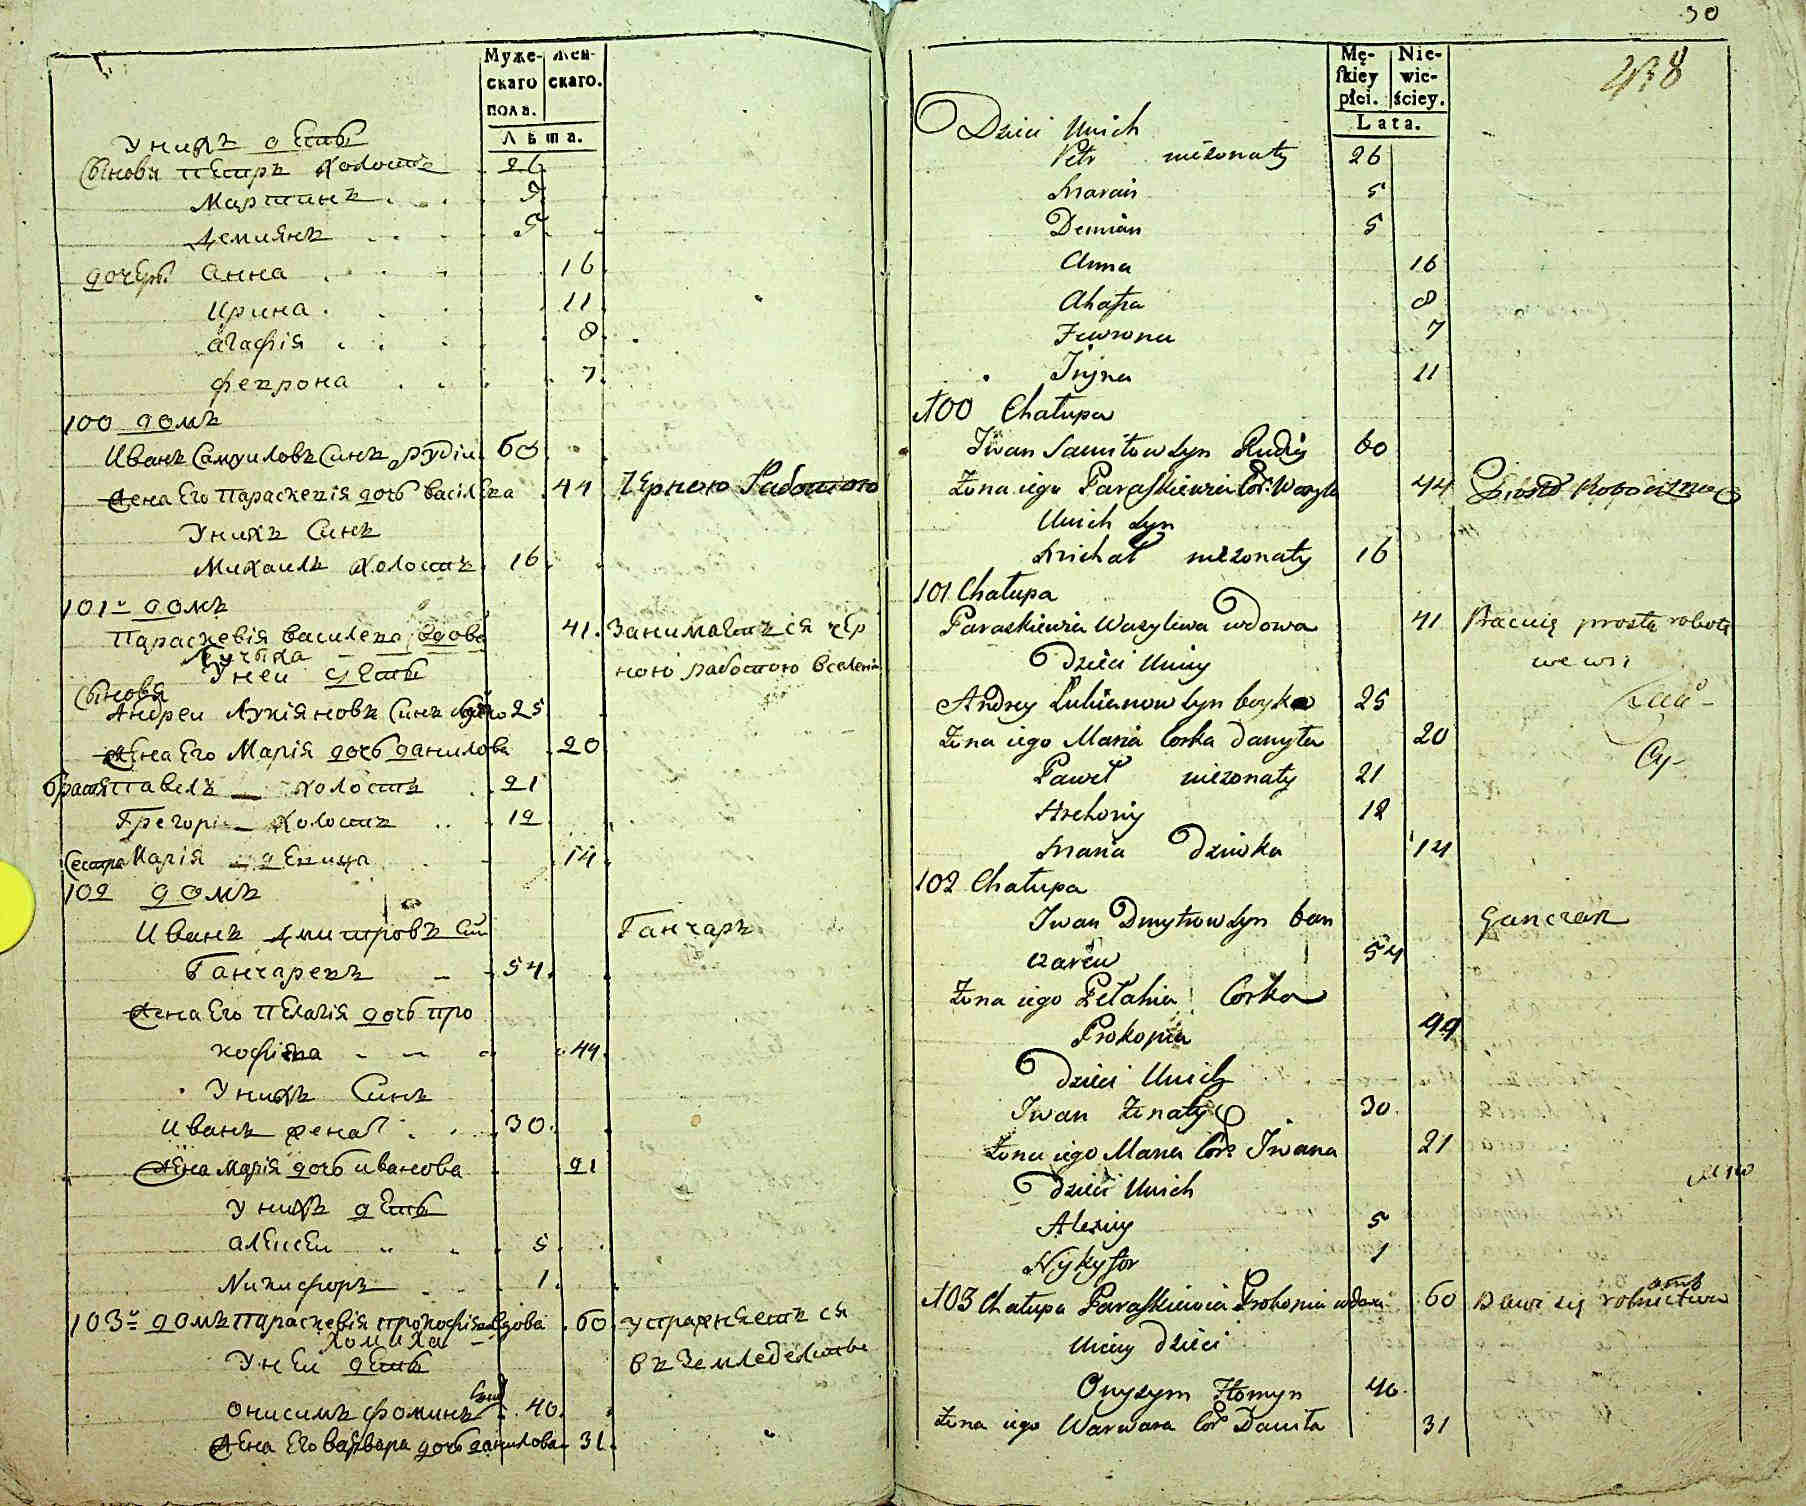 Муже-
скаго
пола.
Жен-
скаго.
Лѣта.
Унихъ дети
Сыновя петръ холостъ 26
Мартинъ 5
демиянъ 5
дочери Анна 16
Ирина 11
агафія 8
феврона 7
100 домъ
Иванъ Самуиловъ Синъ рудіи 60
жена Его параскевія дочь василева 44 Черною Работою
Унихъ Синъ
Михаилъ холостъ 16
101й домъ
параскевія василева вдова 41 Занимаетъ ся чер
ною работою вселеніи
Унеи дети
Сыновя
Андреи Лукіяновъ Синъ 25
жена Его Марія дочь данилова 20
братя павелъ холостъ 21
Григорі холостъ 12
Сестра Марія девица 14
102 домъ
Иванъ дмитровъ Син Ганчаръ
Ганчаревъ 54
жена Его пелагія дочь про
кофіева 44
Унихъ Синъ
Иванъ женат 30
жена Марія дочь иванова 21
унихъ дети
алексеи 5
Никифоръ 1
103й домъ параскевія прокофіева вдова 60 упражняетъ ся
хомиха
Унеи дети въ земледелстве
онисимъ фоминъ Син 40
жена Его варвара дочь данилова 31
30
438
Mę-
skiey
płci.
Nie-
wie-
ściey.
Lata.
Dzieci Unich
Petr nieżonaty 26
Marcin 5
Demian 5
Anna 16
Ahafia 8
Fewrona 7
Iryna 11
100 Chałupa
Iwan Samiłow Syn Rudiy 60
Żona iego Paraskiewia Cór. Wasyla 44
Unich Syn
Michał nieżonaty 16
101 Chałupa
Paraskiewia Wasylwa wdowa 41 Pracuię prostą robotą
Dzieci Uniey we wsi
Andrey Lukianow Syn boyko 25
Żona iego Maria Corka Danyła 20
Paweł nieżonaty 21
Hrehoriy 12
Maria Dziwka 14
102 Chałupa
Iwan Dmytrow Syn han Ganczar
czarew 54
Żona iego Pełahia Corka
Prokopia 44
Dzieci Unich
Iwan Żonaty 30
Żona iego Maria Cór. Iwana 21
Dzieci Unich
Alexiey 5
Nykyfor 1
103 Chałupa Paraskiewia Prokopia wdowa 60 Bawi się rolnictwem
Uniey dzieci
Onysym Homyn 40
Żona iego Warwara Cór Daniła 31